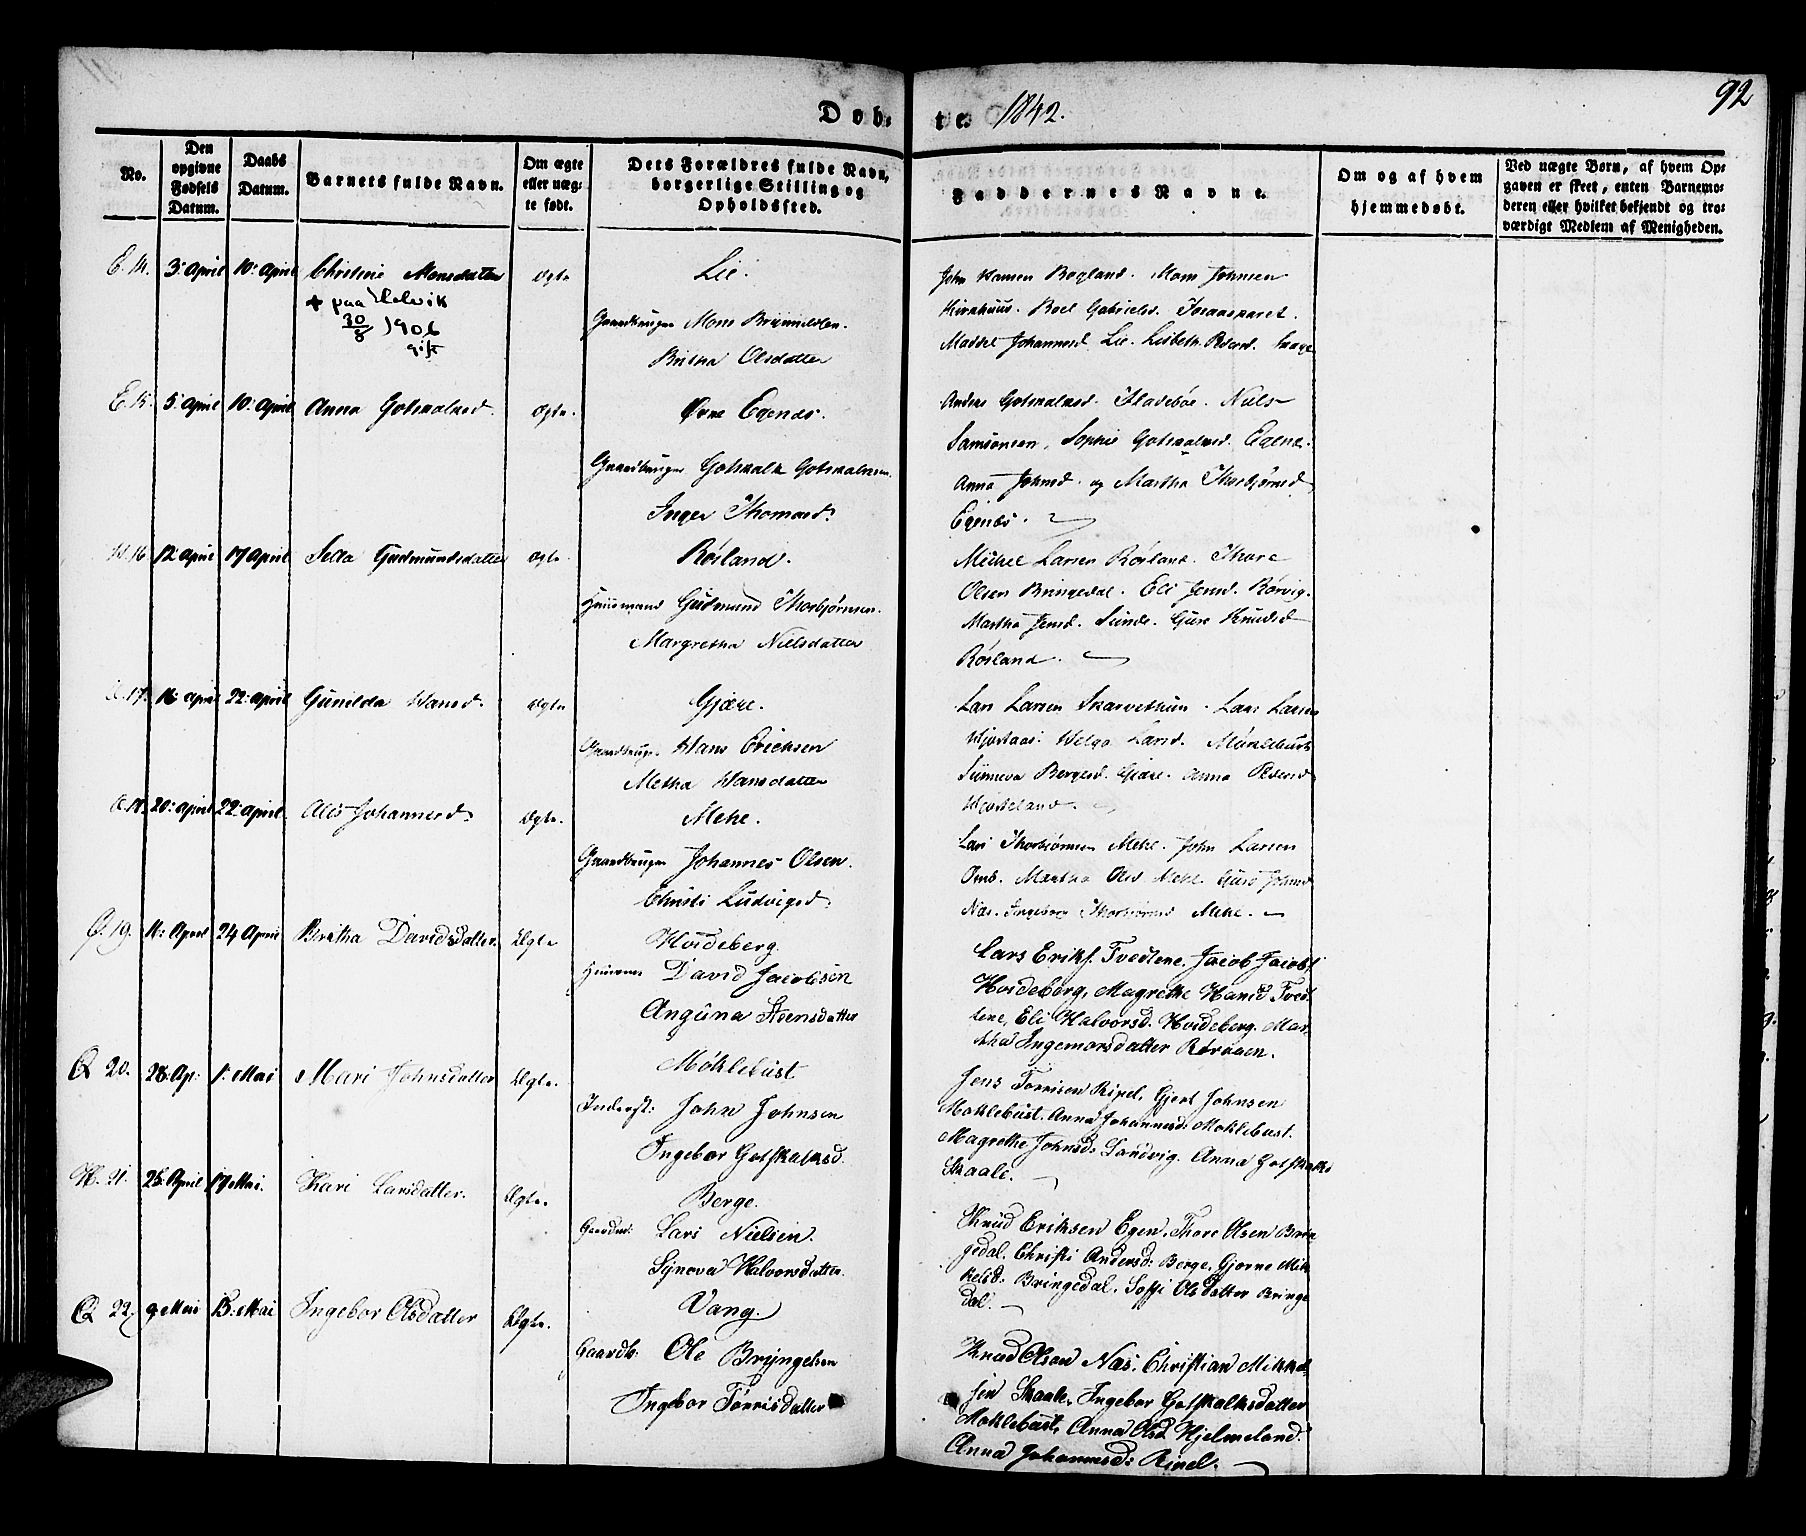 92
Døb- te 1842.
No.
Den opgivne Fødsels Datum.
Daabs Datum.
Barnets fulde Navn.
Om ægte eller uæg- te født.
Dets Forældres fulde Navn, borgerlige Stilling og Opholdssted.
Faddernes Navne.
Om og af hvem hjemmedøbt.
Ved uægte Børn, af hvem Op- gaven er skeet, enten Barnemo- deren eller hvilket bekjendt og tro- værdigt Medlem af Menigheden.
E. 14. 3: April 10: April Christine Monsdatter Ægte Lie.
+ paa Helvik
30/8 1906
gift
Gaardbruger Mons Brynnildsen.
Britha Olsdatter
John Hansen Bogland. Mons Johnsen
Kirkhuus. Boel Gabrielsd.
Johannesd. Lie. Lisbeth
E. 15. 5: April 10: April Anna Gotskalksd. Ægte. Øvre Egenes.
Gaardbruger Gotskalk Gotskalksen
Inger Thomasd:
Anders Gotskalksd. Niels
Samsonsen. Sophie Gotskalksd. Egene.
Anna Johnsd. og Martha Thorbjørnsd
Egenes.
16 12: April 17 April Sella Gudmundsdatter Ægte. Røsland.
Huusmand Gudmund Thorbjørnsen.
Margretha Nielsdatter
Mickel Larsen Røsland. Thore
Olsen Bringedal. Eli Jensd. Rørvig.
Martha Jensd. Sunde. Guro Knudsd
Røsland.
17. 16: April 22: April Gunilda Hansd. Ægte Gjære.
Gaardbruger Hans Erichsen
Metha Hansdatter
Lars Larsen Skarvethun. Lars Larsen
Helga Larsd. Møklebust
Sunneva Bergesd. Gjære. Anna Olsend
Hjorteland.
18. 20: April 22: April Johannesd. Ægte. Mehe.
Gaardbruger Johannes Olsen.
Christi Ludvigsd.
Lars Thorbjørnsen Mehe. John Larsen
Omb. Martha Olsd Mehe. Guro Johnsd
Næs. Ingebor Thorbjørnsd Mehe.
Q. 19. 11: April 24 April Britha Davidsdatter. Ægte Hvideberg.
David Jacobsen
Anguna Steensdatter
Lars Eriks. Tvedtene. Jacob Jacobs.
Hvideberg, Magrethe Hansd Tved-
tene, Eli Halvorsd. Hvideberg. Mar-
tha Ingemorsdatter Rørvaen.
Q 20. 28: Ap: 1: Mai Mari Johnsdatter Ægte. Møklebust
Inderst: John Johnsen
Ingebor Gotskalksd.
Jens Torrisen Ripel. Gjert Johnsen
Moklebust. Anna Johannesd: Moklebust.
Magrethe Johnsd: Sandvig. Anna Gotskalks
Skaale.
H. 21. 25: April 17 Mai. Kari Larsdatter. Ægte. Berge.
Gaardm: Lars Nielsen.
Synova Halvorsdatter.
Knud Eriksen Egen. Thore Olsen Brin-
gedal. Christi Andersd: Berge. Gjorne Mik-
kelsd: Bringedal. Soffi Olsdatter Bringe-
dal.
Q 22. 9 Mai 15: Mai Ingebor Olsdatter Ægte. Vang.
Gaardb: Ole Bryngelsen
Ingebor Torrisdatter
Knud Olson Næs. Christian Mikkel-
sen Skaale. Ingebor Gotskalksdatter
Moklebust, Anna Olsd Hjelmeland.
Anna Johannesd: Ripel.